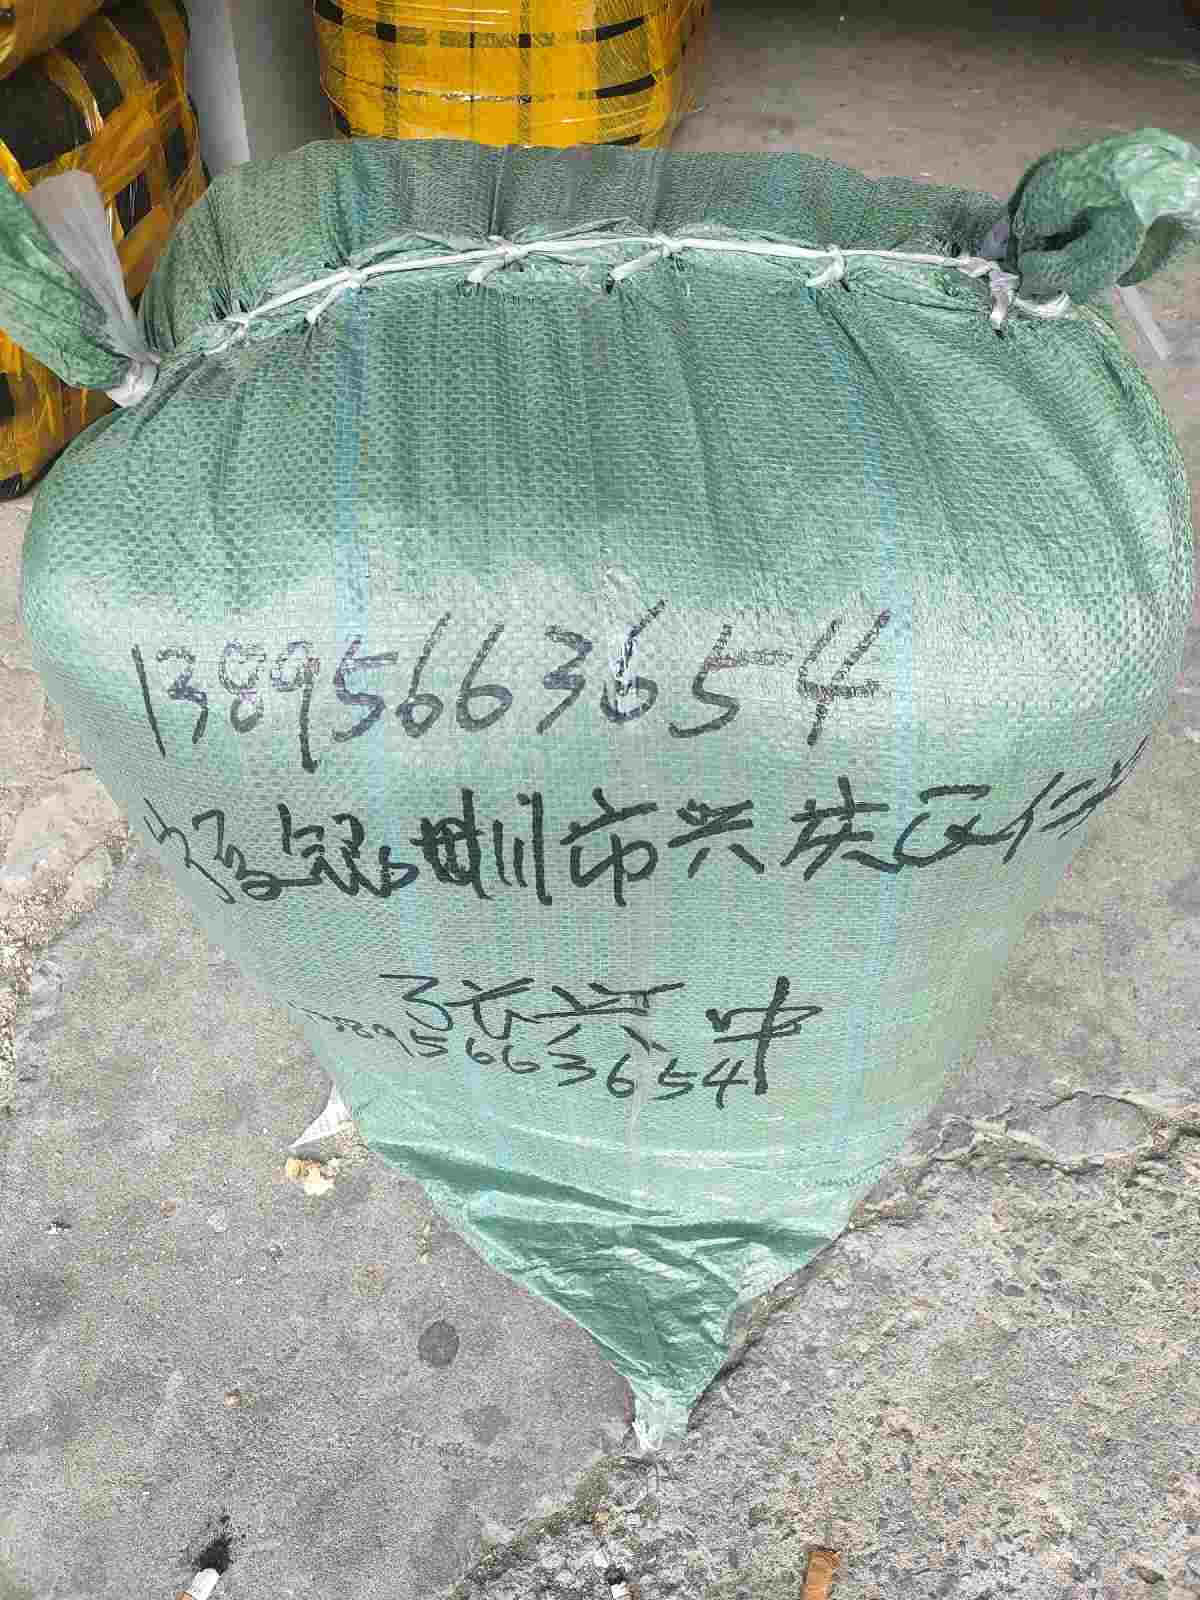 13895663654
银川市兴庆区
张六中
13895663654